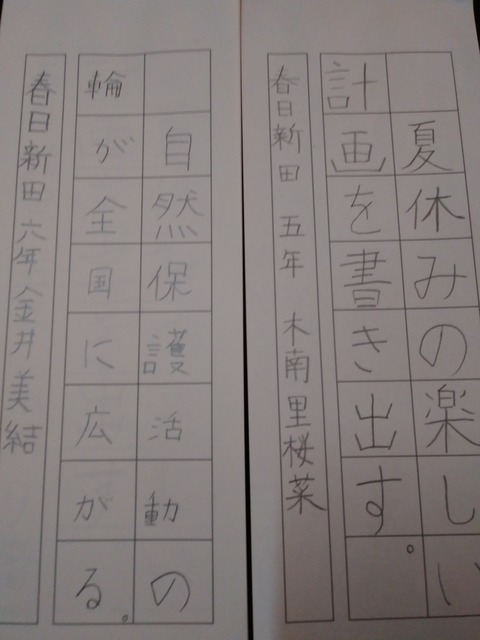 夏休みの楽しい
計画を書き出す。
春日新田 五年 木南里桜菜
自然保護活動の
輪が全国に広がる。
春日新田 六年 金井美結